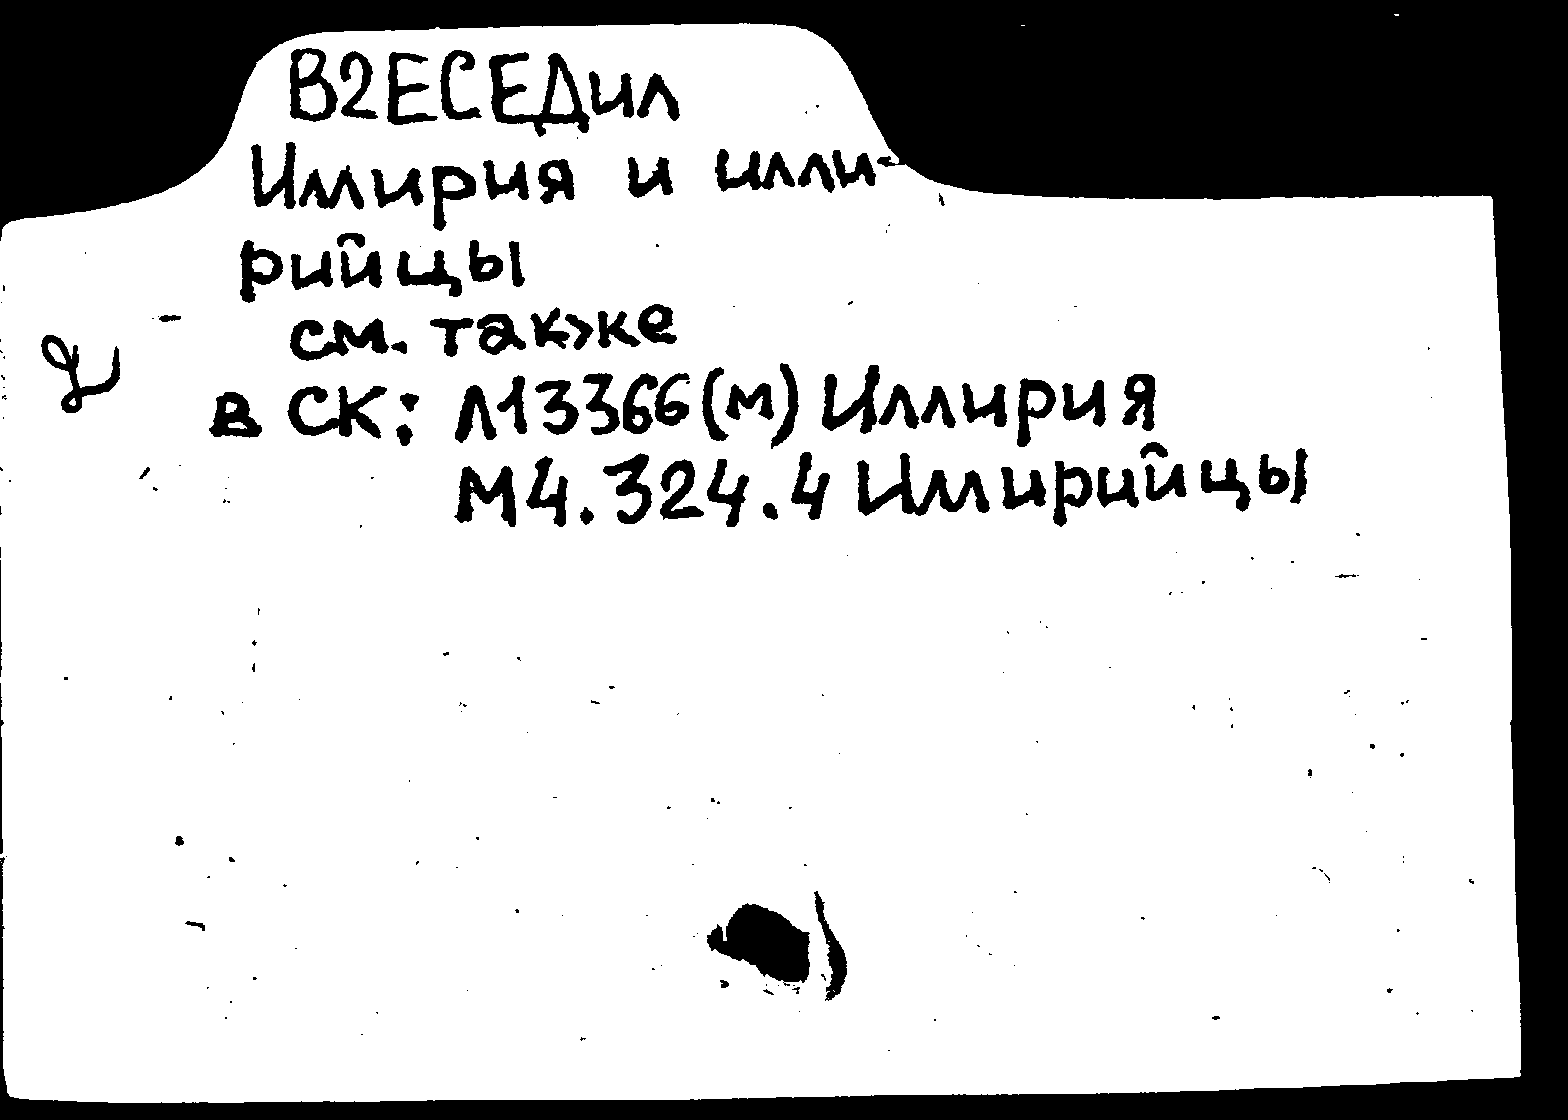 В2ЕСЕДил
Иллирия и илли-
рийцы
см. также
в СК: Л13366(м) Иллирия
М4.324.4 Иллирийцы